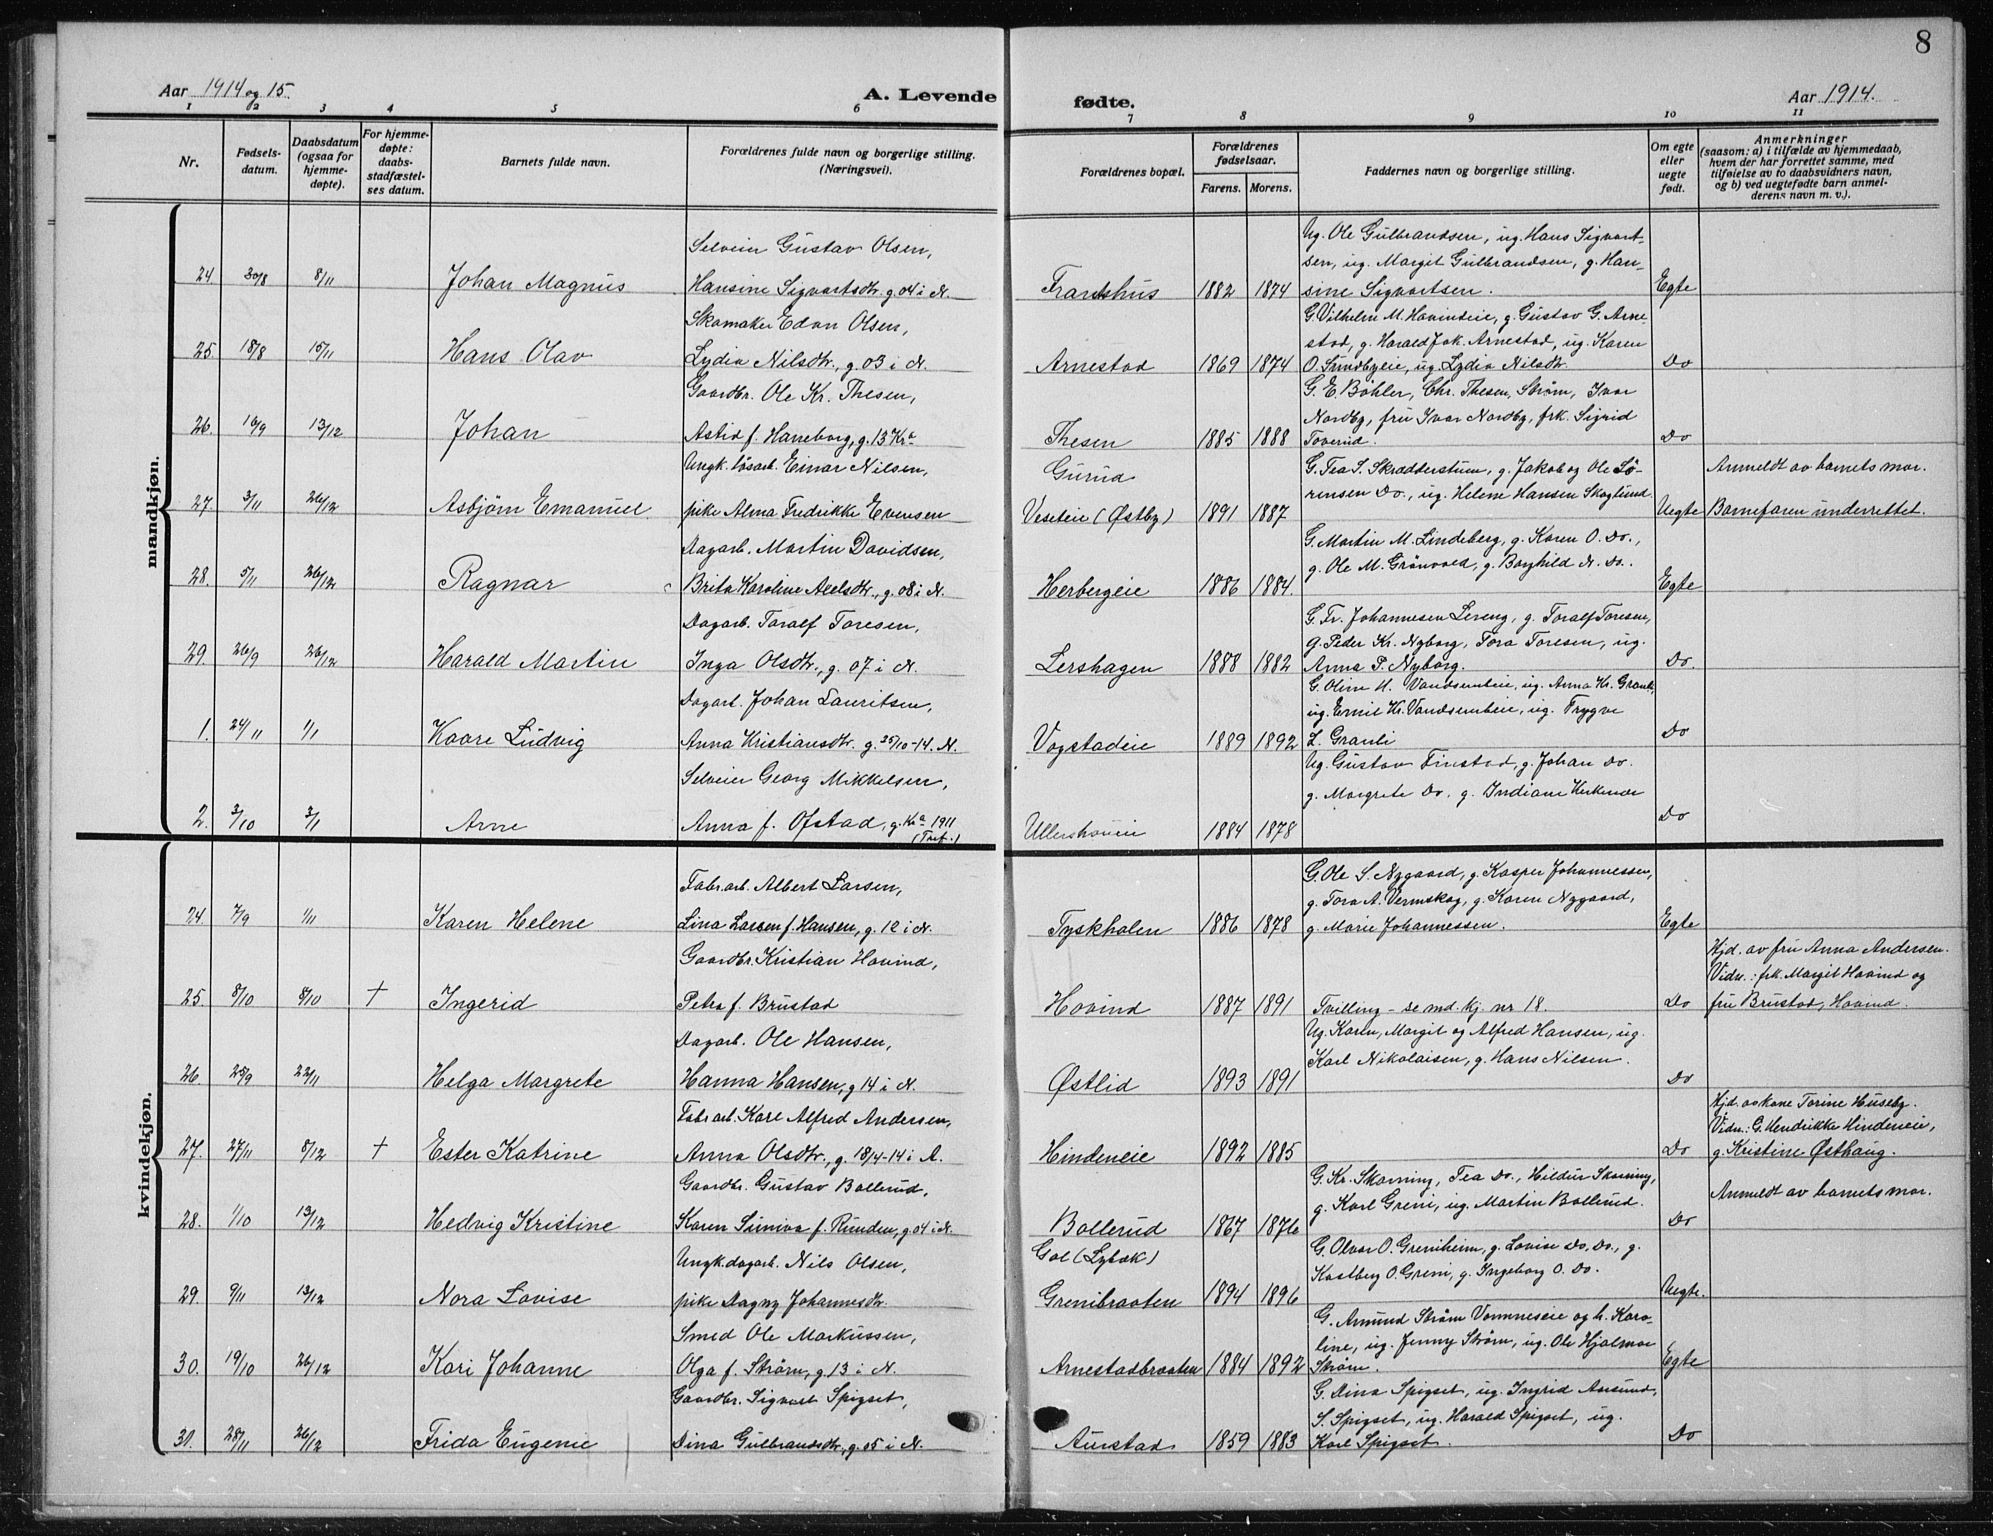 8
Aar 1914 og 15.
A. Levende
fødte.
Aar 1914.
1 2 3 4 5 6 7 8 9 10 11
Nr.
Fødsels-
datum.
Daabsdatum
(ogsaa for
hjemme-
døpte).
For hjemme-
døpte:
daabs-
stadfæstel-
ses datum.
Barnets fulde navn.
Forældrenes fulde navn og borgerlige stilling.
(Næringsvei).
Forældrenes bopæl.
Forældrenes
fødselsaar.
Farens. Morens.
Faddernes navn og borgerlige stilling.
Om egte
eller
uegte
født.
Anmerkninger
(saasom: a) i tilfælde av hjemmedaab,
hvem der har forrettet samme, med
tilføielse av to daabsvidners navn,
og b) ved uegtefødte barn anmel-
derens navn m. v.).
mandkjøn.
Selveier Gustav Olsen,
24. 30/8 8/11 Johan Magnus Hansine Sigvartsdtr. g. 04 i N.
Frantshus 1882 1874
Ug. Ole Gulbrandsen, ug. Hans Sigvart-
sen, ug. Margit Gulbrandsen, g. Han-
sine Sigvartsen.
Egte
Skomaker Edvn Olsen,
25. 18/8 15/11 Hans Olav Lydia Nilsdtr., g. 03 i N.
Arnestad 1869 1874
G. Vilhelm M. Hovindeie, g. Gustav G. Arne-
stad, g. Harald Joh. Arnestad, ug. Karen
O. Sundbyeie, ug. Lydia Nilsdtr.
Do
Gaardbr. Ole Kr. Thesen,
26. 16/9 13/12 Johan Astrid f. Haneborg, g. 13 Kr.a
Thesen 1885 1888
G. E. Bøhler, Chr. Thesen, Strøm, Ivar
Nordby, fru Ivar Nordby, frk. Sigrid
Toverud.
Do
Ungk. løsarb. Einar Nilsen,
27. 3/11 26/12 Asbjørn Emanuel pike Alma Fredrikke Evensen
Gurud
Veseteie (Østby) 1891 1887
G. Tea S. Skrædderstuen, g. Jakob og Ole Sø-
rensen Do., ug. Helene Hansen Skoglund.
Uegte
Anmeldt av barnets mor.
Barnefaren underrettet.
Dagarb. Martin Davidsen,
28. 5/11 26/12 Ragnar Brita Karoline Axelsdtr., g. 08 i N.
Herbergeie 1886 1884.
G. Martin M. Lindeberg, g. Karen O. Do.,
g. Ole M. Grønvold, g. Borghild N. Do.
Egte
Dagarb. Toralf Toresen,
29. 26/9 26/12 Harald Martin Inga Olsdtr., g. 07 i N.
Lershagen 1888 1882
G. Fr. Johannesen Lereng, g. Toralf Toresen,
g. Peder Kr. Nyborg, Tora Toresen, ug.
Anna P. Nyborg.
Do.
Dagarb. Johan Lauritsen,
1. 24/11 1/1 Kaare Ludvig Anna Kristiansdtr. g. 25/10-14. N.
Vogstadeie 1889 1892
G. Oline H. Vandsembeie, ug. Anna Kr. Granli,
ug. Emil Kr. Vandsembeie, ug. Trygve
L. Granli
Do
Selveier Georg Mikkelsen,
2. 3/10 3/1 Arne Anna f. Ofstad, g. Kr.a 1911
1884 1878
Ug. Gustav Finstad, g. Johan Do.
g. Margrete Do. g. Indiane
Do
kvindekjøn.
Fabr.arb. Albert Larsen,
24. 7/9 1/11 Karen Helene Lina Larsen f. Hansen, g. 12 i N.
Tyskholen 1886 1878
G. Ole S. Nygaard, g. Kasper Johannessen,
g. Tora A. Vermskog, g. Karen Nygaard,
g. Marie Johannessen.
Egte
Gaardbr. Kristian Hovind,
25 8/10 8/10 + Ingerid Petra f. Brustad
Hovind 1887 1891
Tvilling - se md. kj. nr 18.
Do
Hjd. av fru Anna Andersen.
Vidn.: frk. Margit Hovind og
fru Brustad, Hovind.
Dagarb. Ole Hansen,
26 25/9 22/11 Helga Margrete Hanna Hansen, g 14 i N.
Østlid 1893 1891
Ug. Karen, Margit og Alfred Hansen, ug.
Karl Nikolaisen, g. Hans Nilsen.
Do
Fabr.arb. Karl Alfred Andersen,
27. 27/11 8/12 + Ester Katrine Anna Olsdtr., g. 18/4-14 i A.
Hindeneie 1892 1885
Do
Hjd. av kone Torine Huseby.
Vidn.: G. Hendrikke Hindeneie,
g. Kristine Østhaug.
Gaardbr. Gustav Bollerud,
28. 1/10 13/12 Hedvig Kristine Karen Suniva f. Runden, g. 04 i N.
Bollerud 1867 1876
G. Kr. Skarning, Tea Do., Hildur Skarning,
g. Karl Greni, ug. Martin Bollerud.
Do
Anmeldt av barnets mor.
Ungk. dagarb. Nils Olsen,
29. 9/11 13/12 Nora Lovise pike Dagny Johannesdtr.
Gol (Lybæk)
Grenibraaten 1894 1896
G. Olvar O. Greniheim, g. Lovise Do. Do., g.
Kastberg O. Greni, g. Ingeborg O. Do.
Uegte.
Smed Ole Markussen,
30. 19/10 26/12 Kari Johanne Olga f. Strøm, g. 13 i N.
Arnestadbraaten 1884 1892
G. Amund Strøm Vomneseie og h. Karo-
line, ug. Jenny Strøm, ug. Ole Hjalmar
Strøm.
Egte
Gaardbr. Sigvart Spigset,
31. 28/11 26/12 Frida Eugenie Dina Gulbrandsdtr., g. 05 i N.
Aurstad 1859 1883
G. Dina Spigset, ug. Ingrid Aursund,
S. Spigset, ug. Harald Spigset, ug.
Karl Spigset.
Do